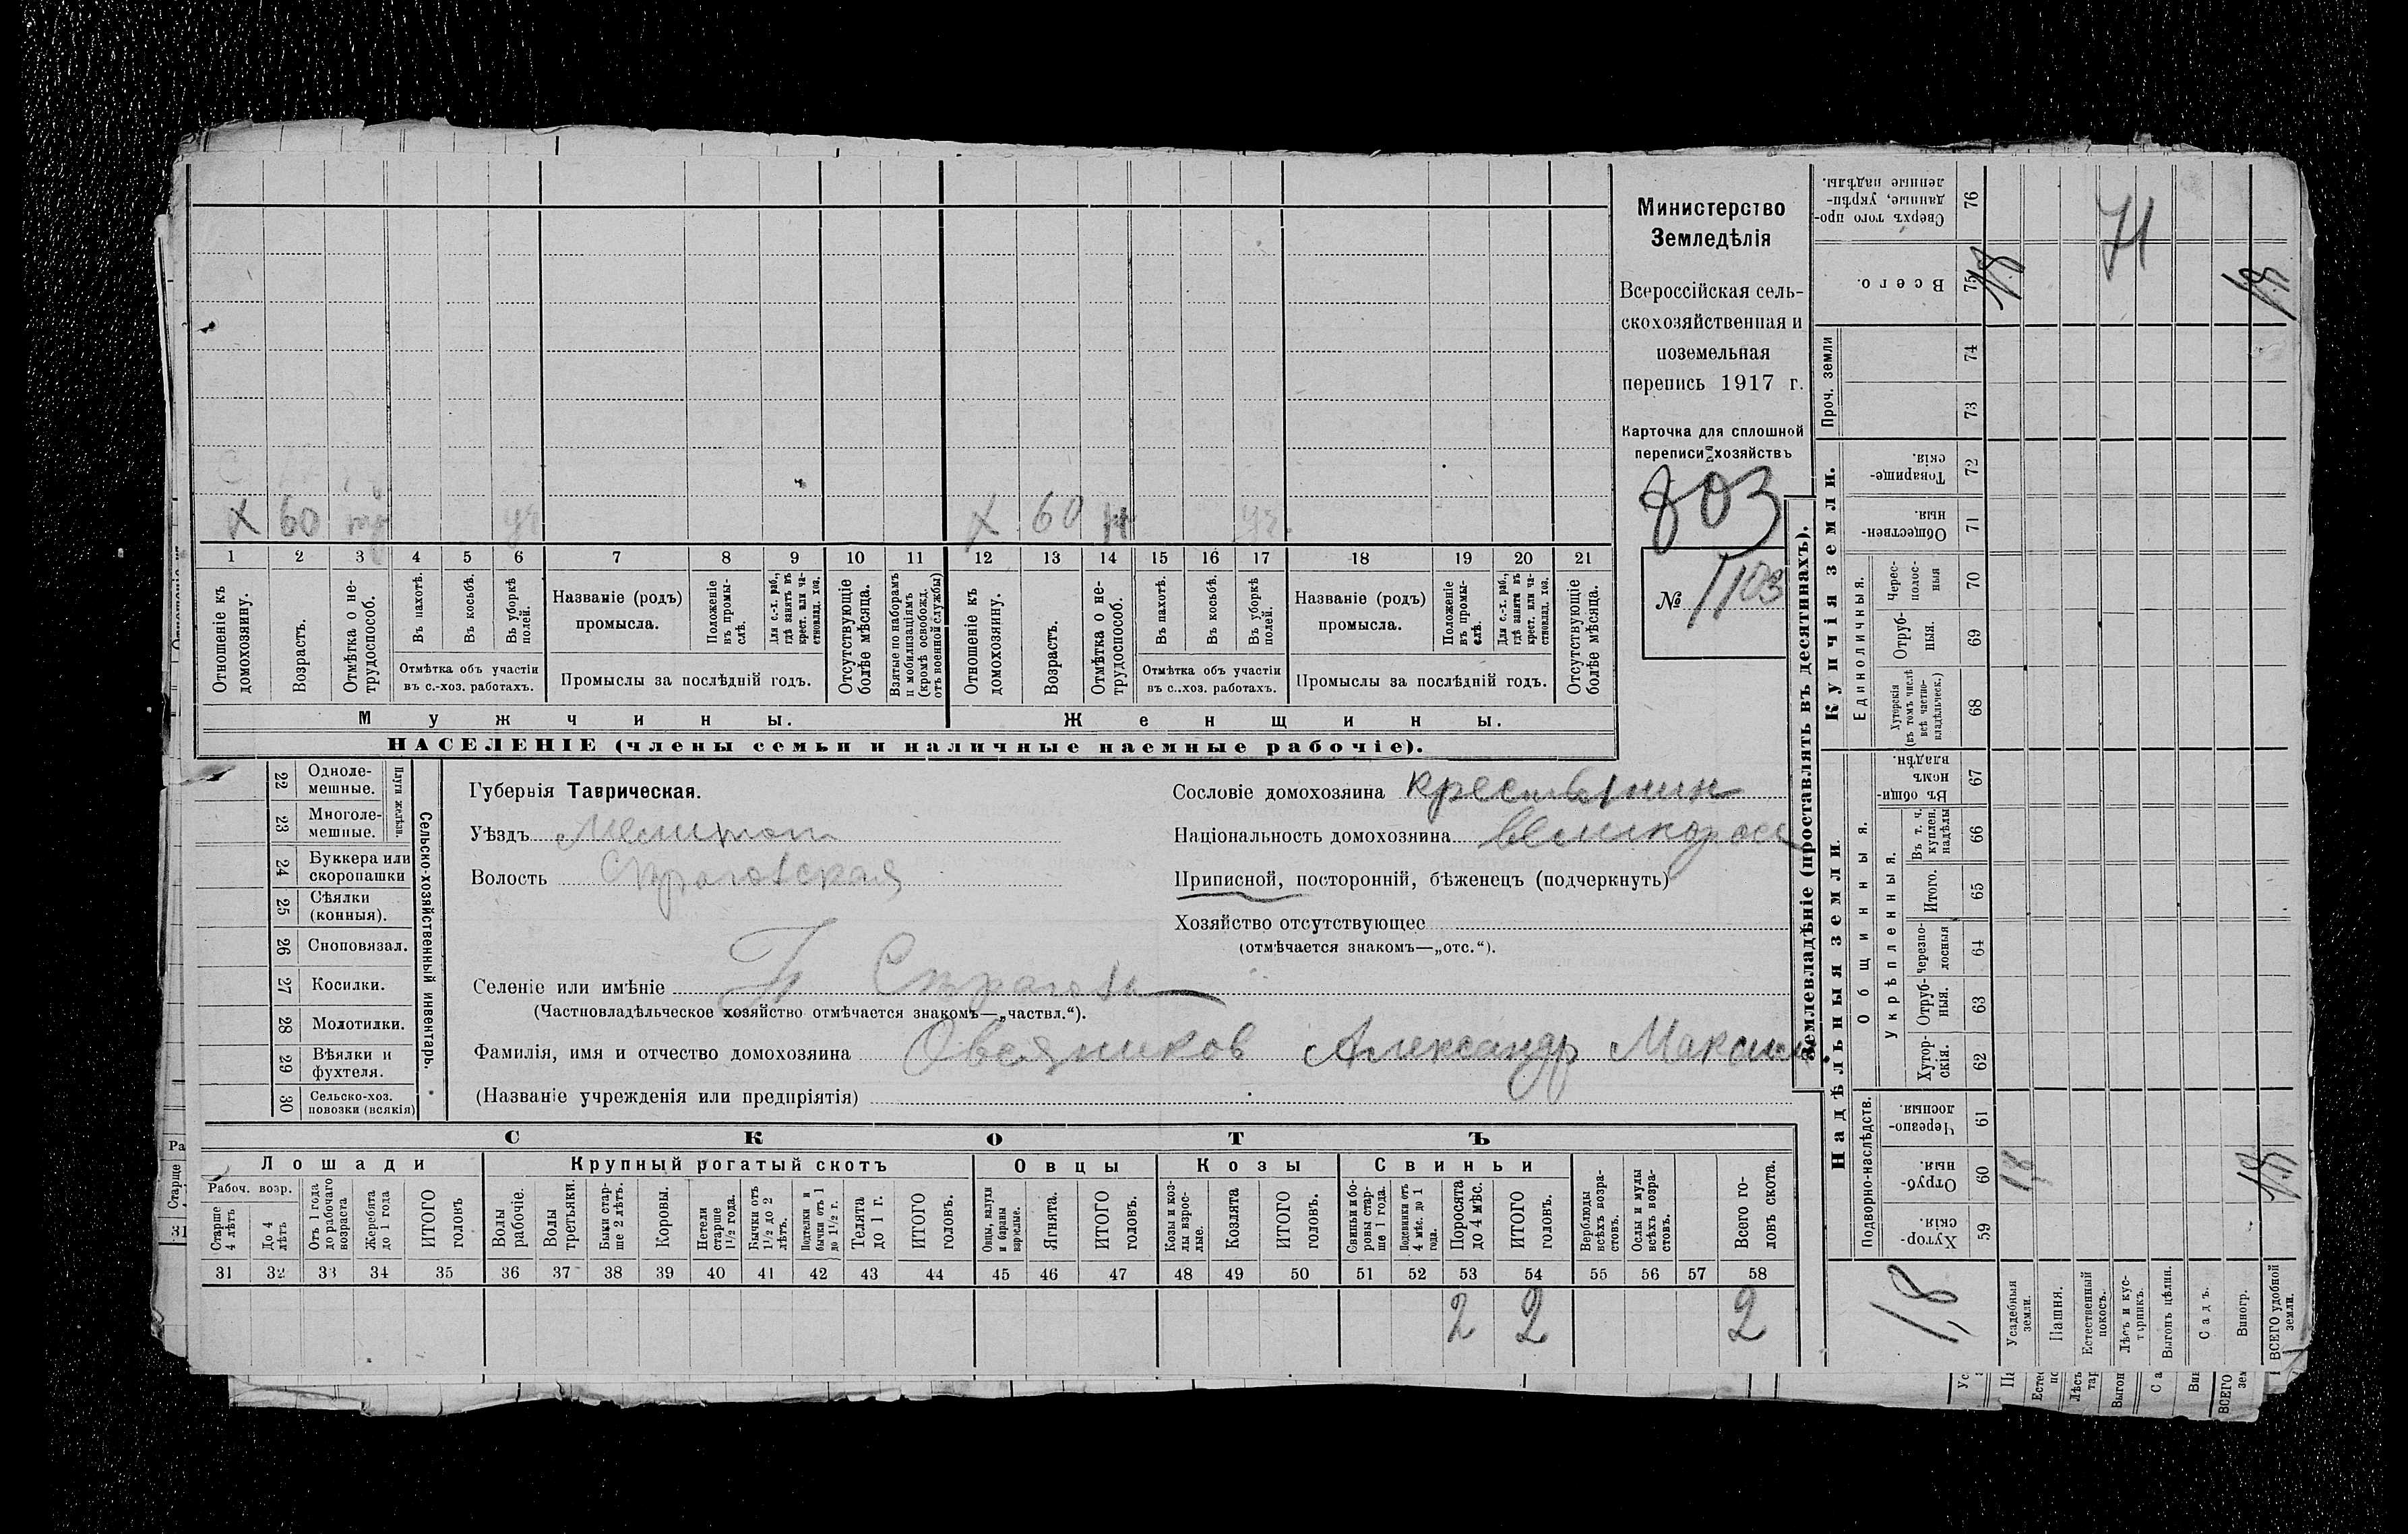 Министерство
Земледѣлія
Всероссійская сель-
скохозяйственная и
поземельная
перепись 1917 г.
Карточка для сплошной
переписи хозяйствъ
803
№ 1103
X 60 уч X 60 уч.
1 2 3 4 5 6 7 8 9 10 11 12 13 14 15 16 17 18 19 20 21
Отношеніе къ домохозяину.
Возрастъ.
Отмѣтка о не-трудоспособ.
Въ пахотѣ.
Въ косьбѣ.
Въ уборкѣ полей.
Отмѣтка объ участіи
въ с.-хоз. работахъ.
Названіе (родъ)
промысла.
Положеніе въ промы-слѣ.
Для с.-х. раб., гдѣ занятъ въ крест. или ча-стновлад. хоз.
Промыслы за послѣдній годъ.
Отсутствующіе болѣе мѣсяца.
Взятые по наборамъ и мобилизаціямъ (кромѣ освобожд. отъ военной службы)
Отношеніе къ домохозяину.
Возрастъ.
Отмѣтка о не-трудоспособ.
Въ пахотѣ.
Въ косьбѣ.
Въ уборкѣ полей.
Отмѣтка объ участіи
въ с.-хоз. работахъ.
Названіе (родъ)
промысла.
Положеніе въ промы-слѣ.
Для с.-х. раб., гдѣ занята въ крест. или ча-стновлад. хоз.
Промыслы за послѣдній годъ.
Отсутствующіе болѣе мѣсяца.
Мужчины.
Женщины.
НАСЕЛЕНІЕ (члены семьи и наличные наемные рабочіе).
22 Одноле-мешные.
23 Многоле-мешные.
Плуги желѣзн.
24 Буккера или скоропашки
25 Сѣялки (конныя).
26 Сноповязал.
27 Косилки.
28 Молотилки.
29 Вѣялки и фухтеля.
30 Сельско-хоз. повозки (всякія)
Сельско-хозяйственный инвентарь.
Губернія Таврическая.
Уѣздъ Мелитоп
Волость Строговская
Селеніе или имѣніе П Строговка
(Частновладѣльческое хозяйство отмѣчается знакомъ—„частвл.“).
Фамилія, имя и отчество домохозяина Овсяников Александр Максим
(Названіе учрежденія или предпріятія)
Сословіе домохозяина крестьянин
Національность домохозяина великоросс
Приписной, посторонній, бѣженецъ (подчеркнуть)
Хозяйство отсутствующее
(отмѣчается знакомъ—„отс.“).
СКОТЪ
Лошади Крупный рогатый скотъ Овцы Козы Свиньи
Рабоч. возр.
Старше 4 лѣтъ
До 4 лѣтъ
Отъ 1 года до рабочаго возраста
Жеребята до 1 года
ИТОГО головъ
Волы рабочіе.
Волы третьяки.
Быки стар-ше 2 лѣтъ.
Коровы.
Нетели старше 1½ года.
Бычки отъ 1½ до 2 лѣтъ.
Подтелки и бычки отъ 1 до 1½ г.
Телята до 1 г.
ИТОГО головъ.
Овцы, валухи и бараны взрослые.
Ягнята.
ИТОГО головъ.
Козы и коз-лы взрос-лые.
Козлята
ИТОГО головъ.
Свиньи и бо-ровы стар-ше 1 года.
Подсвинки отъ 4 мѣс. до 1 года.
Поросята до 4 мѣс.
ИТОГО головъ.
Верблюды всѣхъ возра-стовъ.
Ослы и мулы всѣхъ возра-стовъ.
Всего го-ловъ скота.
31 32 33 34 35 36 37 38 39 40 41 42 43 44 45 46 47 48 49 50 51 52 53 54 55 56 57 58
2 2 2
Землевладѣніе (проставлять въ десятинахъ).
Надѣльныя земли.
Купчія земли.
Проч. земли
Подворно-наслѣдств.
Общинныя.
Укрѣпленныя.
Единоличныя.
Хутор-скія. 59
Отруб-ныя. 60
Черезпо-лосныя. 61
Хутор-скія. 62
Отруб-ныя. 63
черезпо-лосныя 64
Итого. 65
Въ т. ч. куплен. надѣлы 66
Въ общин-номъ владѣн. 67
Хуторскія (въ томъ числѣ всѣ частно-владѣльческ.) 68
Отруб-ныя. 69
Черес-полос-ныя 70
Обществен-ныя. 71
Товарище-скія. 72
73
74
Всего. 75
Сверхъ того про-данные, укрѣп-ленные надѣлы. 76
1,8
Усадебныя земли. 1,8 1,8
Пашня.
Естественный покосъ.
Лѣсъ и кус-тарникъ.
Выгонъ цѣлин.
Садъ.
Виногр.
ВСЕГО удобной земли. 1,8 1,8
71